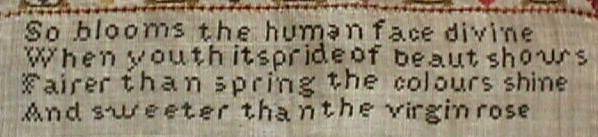 So blooms the human face divine
When youth its pride of beaut shows
Fairer than spring the colours shine
And sweeter than the virgin rose